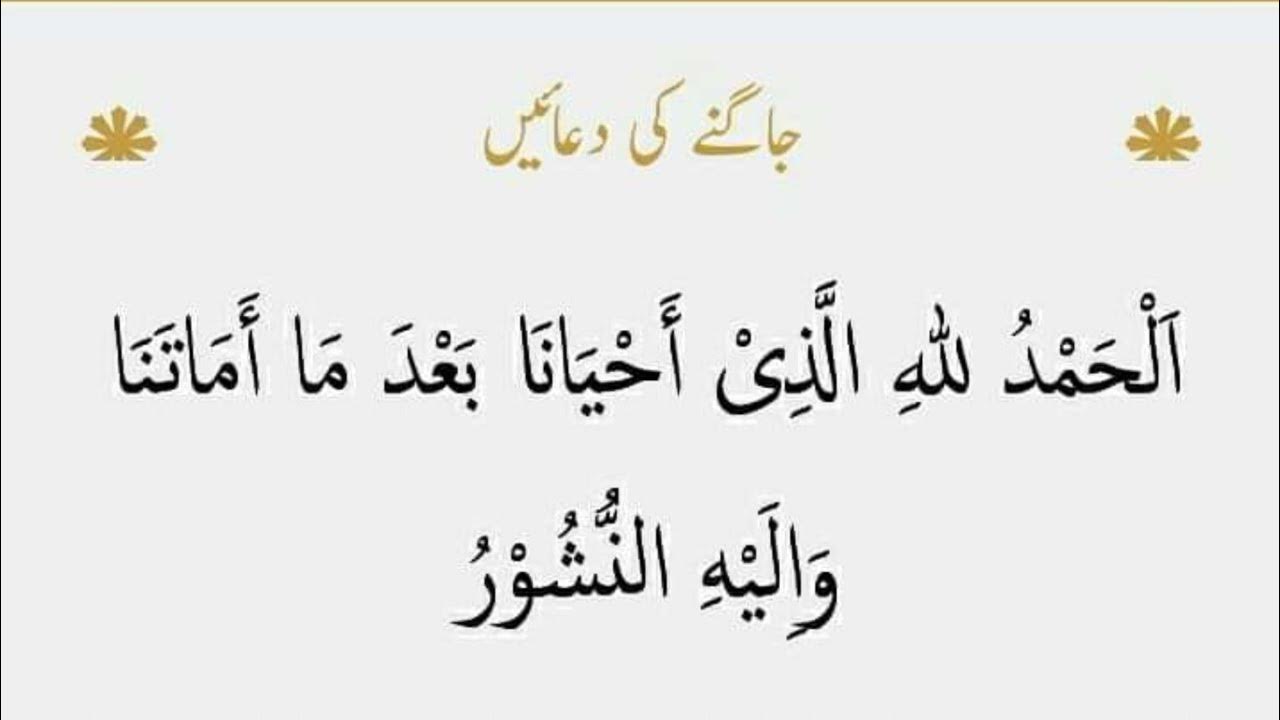 جاگنے کی دعائیں
اَلْحَمْدُ لِلهِ الَّذِیْ أَحْيَانَا بَعْدَ مَا أَمَاتَنَا
وَاِلَيْهِ النُّشُوْرُ